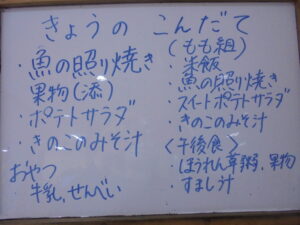 きょうの こんだて
・魚の照り焼き
果物(添)
・ポテトサラダ
・きのこのみそ汁
おやつ
牛乳、せんべい
(もも組)
・米飯
魚の照り焼き
スイートポテトサラダ
きのこのみそ汁
〈午後食〉
・ほうれん草粥、果物
・すまし汁